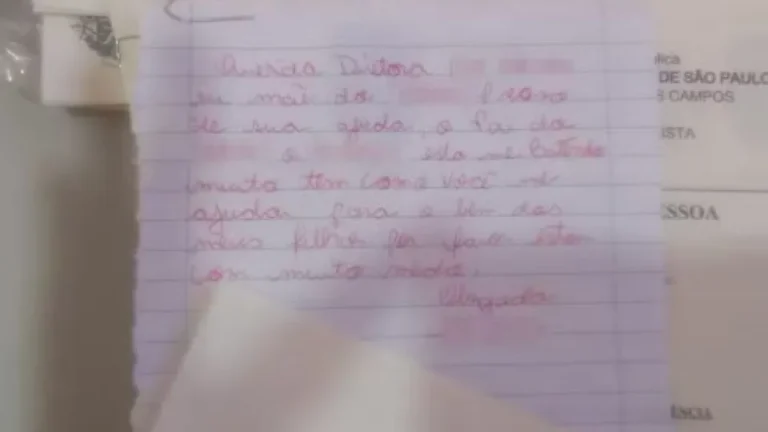 Querida Diretora
eu mãe da Preciso
de sua ajuda, o Pai da
e esta me Batendo
muito tem como você me
ajudar para o bem dos
meus filhos por favor estou
com muito medo.
Obrigada
DE SÃO PAULO
S CAMPOS
ISTA
SSOA
ÊNCIA